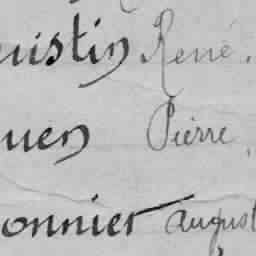 uistin René.
uen Pierre,
onnier august